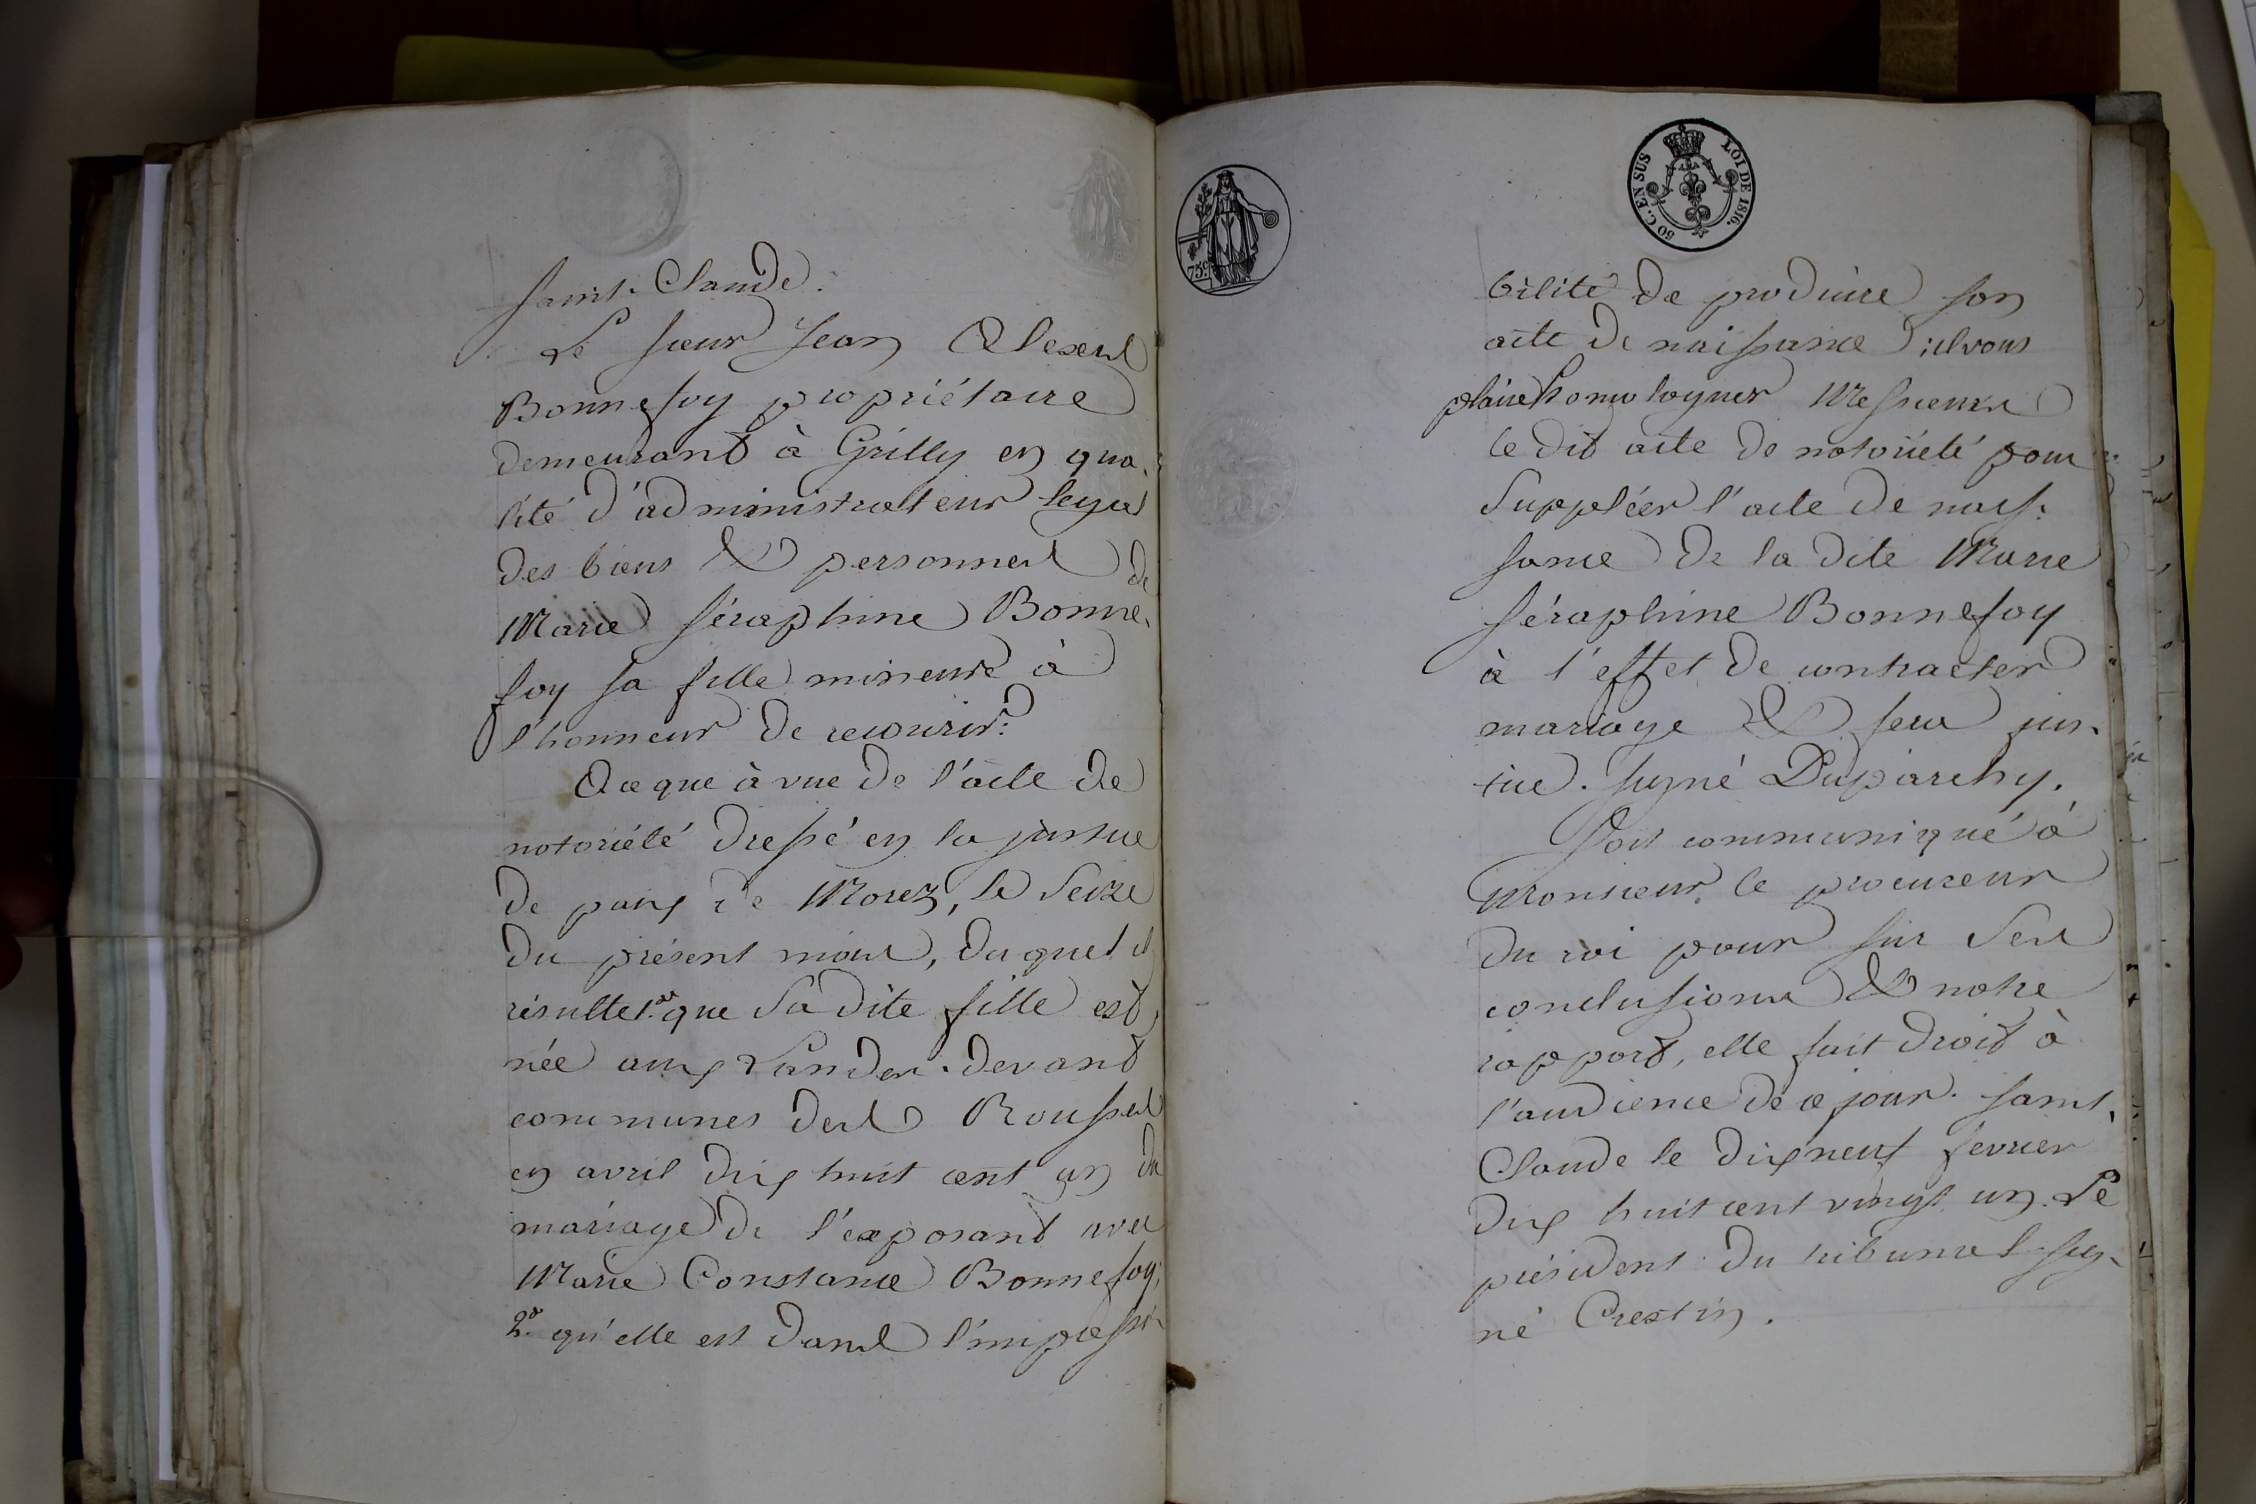 Saint-Claude.
Le sieur Jean Alexis
Bonnefoy propriétaire
demeurant à Grilly en qua-
lité d'administrateur legal
des biens & personnes de
Marie Séraphine Bonne-
foy sa fille mineure à
l'honneur de recourir:
A ce que à vue de l'acte de
notoriété dressé en la justice
de paix de Morez, le seize
du présent mois, duquel il
résulte 1.° que sa dite fille est
née aux Landes-devant
communes des Rousses
en avril dix huit cent un du
mariage de l'exposant avec
Marie Constance Bonnefoy;
2.° qu'elle est dans l'impossi-
50 C. EN SUS LOI DE 1816.
75c.
bilité de produire son
acte de naissance; il vous
plaise homologuer Messieurs
le dit acte de notoriété pour
suppléer l'acte de nais-
sance de la dite Marie
Séraphine Bonnefoy
à l'effet de contracter
mariage & sera jus-
tice. signé Duparchy.
Soit communiqué à
Monsieur le procureur
du roi pour sur ses
conclusions & notre
rapport, elle fait droit à
l'audience de ce jour. Saint-
Claude le dix neuf fevrier
dix huit cent vingt un. Le
président du tribunal sig-
né Crestin.